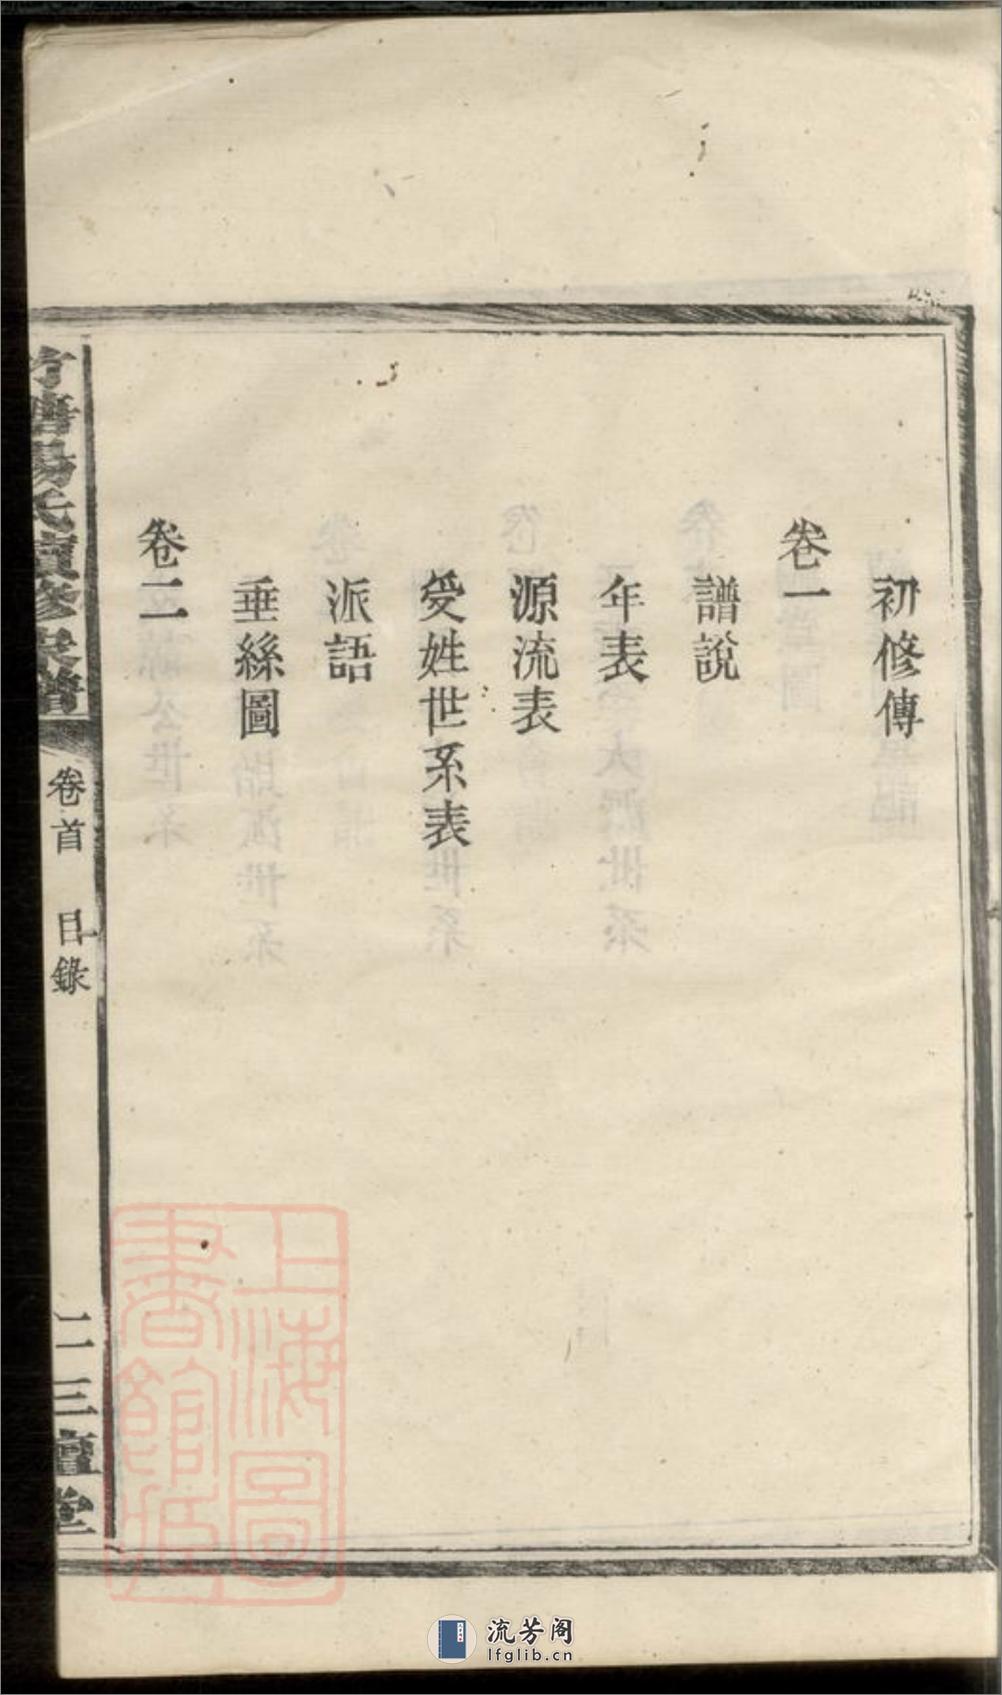 初修傳
卷一
譜說
年表
源流表
受姓世系表
派語
垂絲圖
卷二
竹塘楊氏續修宗譜
卷首 目錄
二 三鱣堂
上海圖
書館藏
流芳阁
lfglib.cn